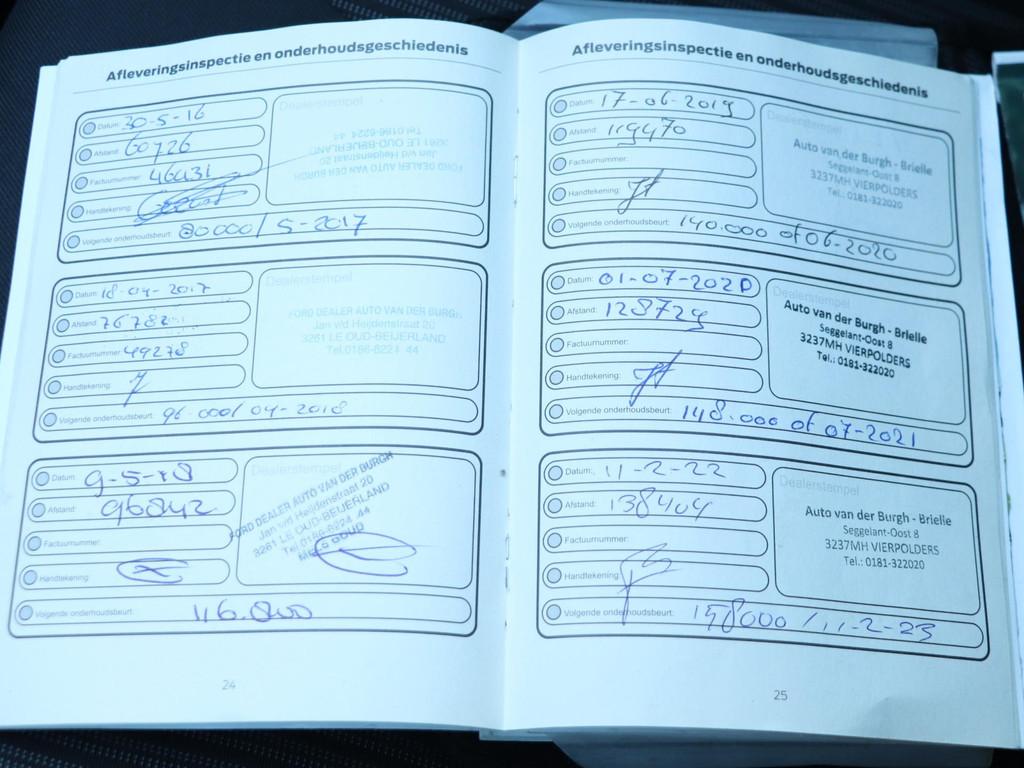 Afleveringsinspectie en onderhoudsgeschiedenis
Datum: 30-5-16
Afstand: 60726
Factuurnummer: 46431
Handtekening:
Volgende onderhoudsbeurt: 80000/ 5-2017
Dealerstempel
FORD DEALER AUTO VAN DER BURGH
Jan v/d Heijdenstraat 20
3261 LE OUD-BEIJERLAND
Tel.0186-6224 44
Datum: 18-04-2017
Afstand: 76782
Factuurnummer: 49278
Handtekening:
Volgende onderhoudsbeurt: 96.000/ 04-2018
Dealerstempel
FORD DEALER AUTO VAN DER BURGH
Jan v/d Heijdenstraat 20
3261 LE OUD-BEIJERLAND
Tel.0186-6224 44
Datum: 9-5-18
Afstand: 96842
Factuurnummer:
Handtekening:
Volgende onderhoudsbeurt: 116.800
Dealerstempel
FORD DEALER AUTO VAN DER BURGH
Jan v/d Heijdenstraat 20
3261 LE OUD-BEIJERLAND
Tel.0186-6224 44
24
Afleveringsinspectie en onderhoudsgeschiedenis
Datum: 17-06-2019
Afstand: 119470
Factuurnummer:
Handtekening:
Volgende onderhoudsbeurt: 140.000 of 06-2020
Dealerstempel
Auto van der Burgh - Brielle
Seggelant-Oost 8
3237MH VIERPOLDERS
Tel.: 0181-322020
Datum: 01-07-2020
Afstand: 128729
Factuurnummer:
Handtekening:
Volgende onderhoudsbeurt: 148.000 of 07-2021
Dealerstempel
Auto van der Burgh - Brielle
Seggelant-Oost 8
3237MH VIERPOLDERS
Tel.: 0181-322020
Datum: 11-2-22
Afstand: 138404
Factuurnummer:
Handtekening:
Volgende onderhoudsbeurt: 158000 / 11-2-23
Dealerstempel
Auto van der Burgh - Brielle
Seggelant-Oost 8
3237MH VIERPOLDERS
Tel.: 0181-322020
25